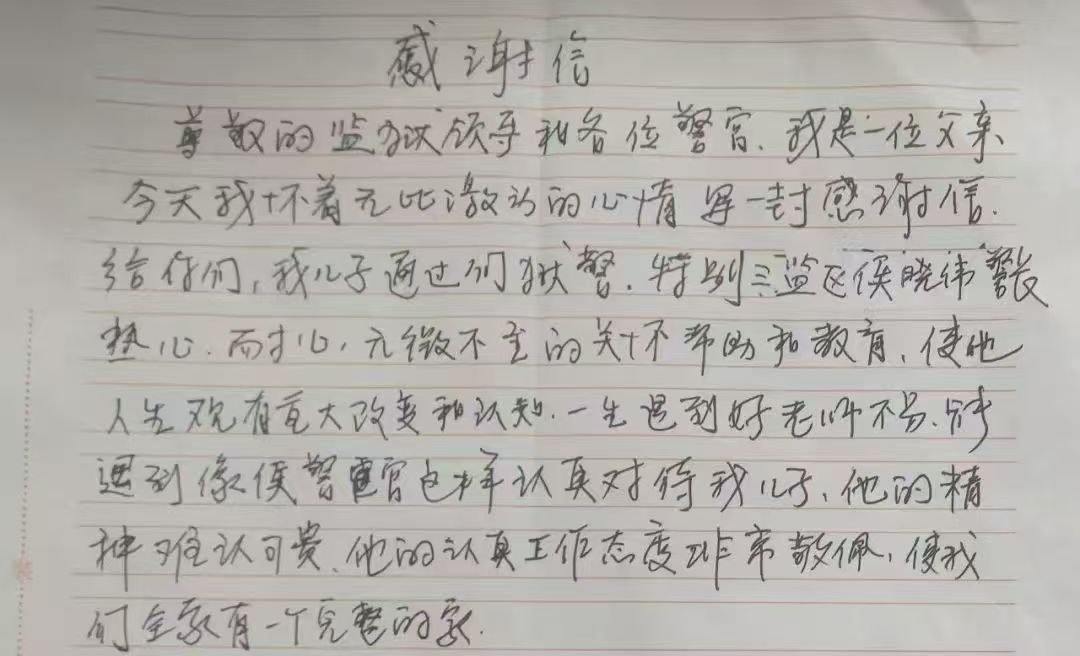 感谢信
尊敬的监狱领导和各位警官.我是一位父亲
今天我怀着无比激动的心情写一封感谢信.
给你们,我儿子通过们狱警.特别三监区侯晓伟警长
热心.而才心,无微不至的关怀帮助和教育、使他
人生观有重大改变和认知.一生遇到好老师不易、能
遇到像侯警官这样认真对待我儿子、他的精
神难认可贵、他的认真工作态度非常敬佩、使我
们全家有一个完整的家.